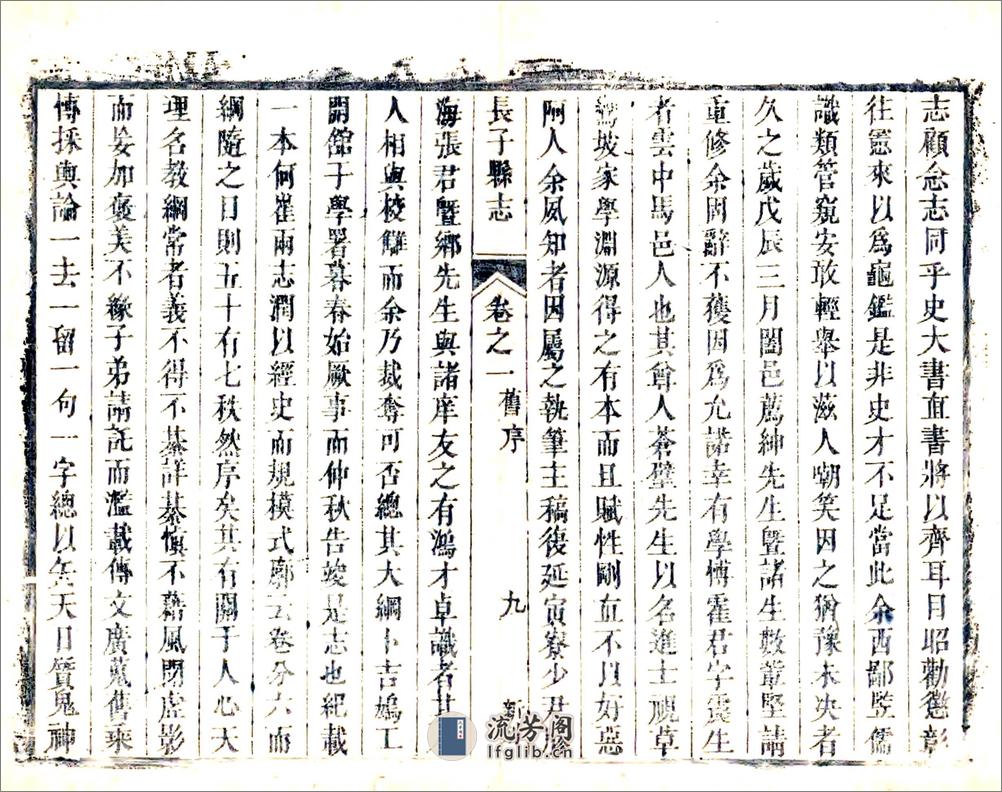 志顧念志同乎史大書直書將以齊耳目昭勸懲彰
往憲來以爲龜鑑是非史才不足當此余西鄙豎儒
識類管窺安敢輕舉以滋人嘲笑因之猶豫未決者
久之歲戊辰三月闔邑薦紳先生暨諸生數輩堅請
重修余固辭不獲因爲允諾幸有學博霍君字震生
者雲中馬邑人也其曾人蒼璧先生以名進士視草
坡家學淵源得之有本而且賦性剛直不以好惡
阿人余夙知者因屬之執筆主稿後延寅寮少尹
長子縣志
卷之一
舊序
九
海張君暨鄉先生與諸庠友之有鴻才卓識者廿
人相與校讎而余乃裁奪可否總其大綱卜吉鳩工
開舘于學署暮春始厥事而仲秋告竣是志也紀載
一本何崔兩志潤以經史而規模式廓云卷分六而
綱隨之目則五十有七秩然序矣其有關于人心天
理名教綱常者義不得不綦詳綦愼不藉風聞虛影
而妄加褒美不緣子弟請託而濫載傳文廣蒐舊乘
傳採輿論一去一留一句一字總以矢天日質鬼神
流芳阁
lfglib.cn